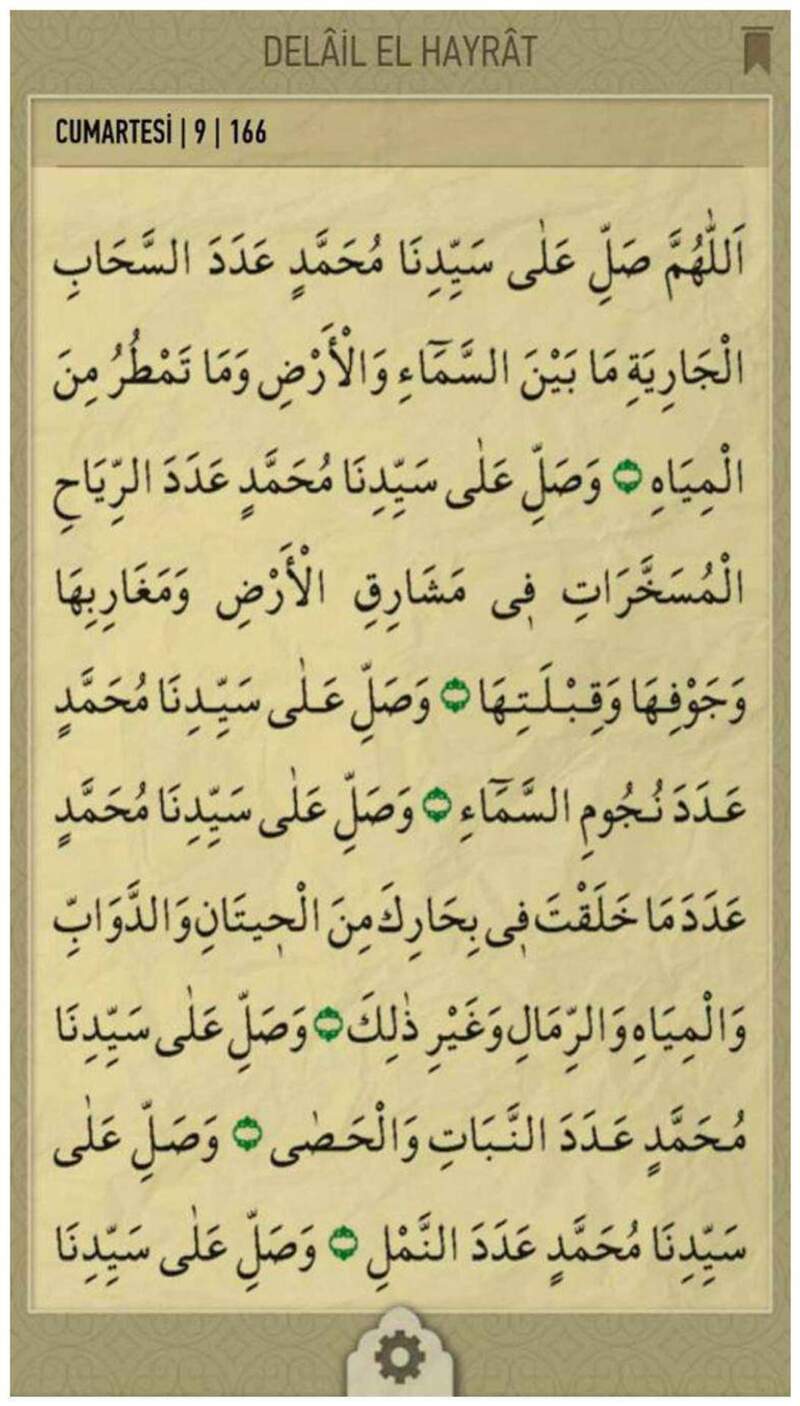 DELÂİL EL HAYRÂT
CUMARTESİ | 9 | 166
اَللّٰهُمَّ صَلِّ عَلٰى سَيِّدِنَا مُحَمَّدٍ عَدَدَ السَّحَابِ
الْجَارِيَةِ مَا بَيْنَ السَّمَٓاءِ وَالْأَرْضِ وَمَا تَمْطُرُ مِنَ
الْمِيَاهِ ۝ وَصَلِّ عَلٰى سَيِّدِنَا مُحَمَّدٍ عَدَدَ الرِّيَاحِ
الْمُسَخَّرَاتِ فٖى مَشَارِقِ الْأَرْضِ وَمَغَارِبِهَا
وَجَوْفِهَا وَقِبْلَتِهَا ۝ وَصَلِّ عَلٰى سَيِّدِنَا مُحَمَّدٍ
عَدَدَ نُجُومِ السَّمَٓاءِ ۝ وَصَلِّ عَلٰى سَيِّدِنَا مُحَمَّدٍ
عَدَدَ مَا خَلَقْتَ فٖى بِحَارِكَ مِنَ الْحٖيتَانِ وَالدَّوَابِّ
وَالْمِيَاهِ وَالرِّمَالِ وَغَيْرِ ذٰلِكَ ۝ وَصَلِّ عَلٰى سَيِّدِنَا
مُحَمَّدٍ عَدَدَ النَّبَاتِ وَالْحَصٰى ۝ وَصَلِّ عَلٰى
سَيِّدِنَا مُحَمَّدٍ عَدَدَ النَّمْلِ ۝ وَصَلِّ عَلٰى سَيِّدِنَا